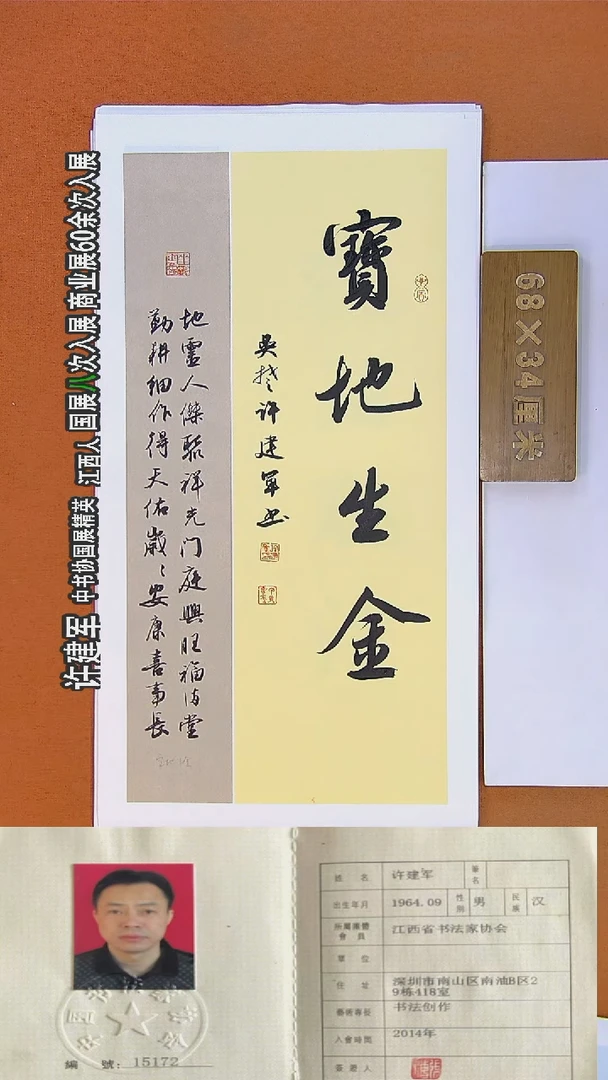 许建军 中书协国展精英 江西人 国展八次入展 商业展60余次入展
寶地生金
吳楚许建军书
地靈人傑聚祥光门庭興旺福满堂
勤耕细作得天佑歲々安康喜事長
68×34厘米
姓名 许建军 筆名
出生年月 1964.09 性别 男 民族 汉
所属團體會員 江西省书法家协会
單位
住址 深圳市南山区南油B区29栋418室
藝術專長 书法创作
入會時間 2014年
簽證人
編號：15172